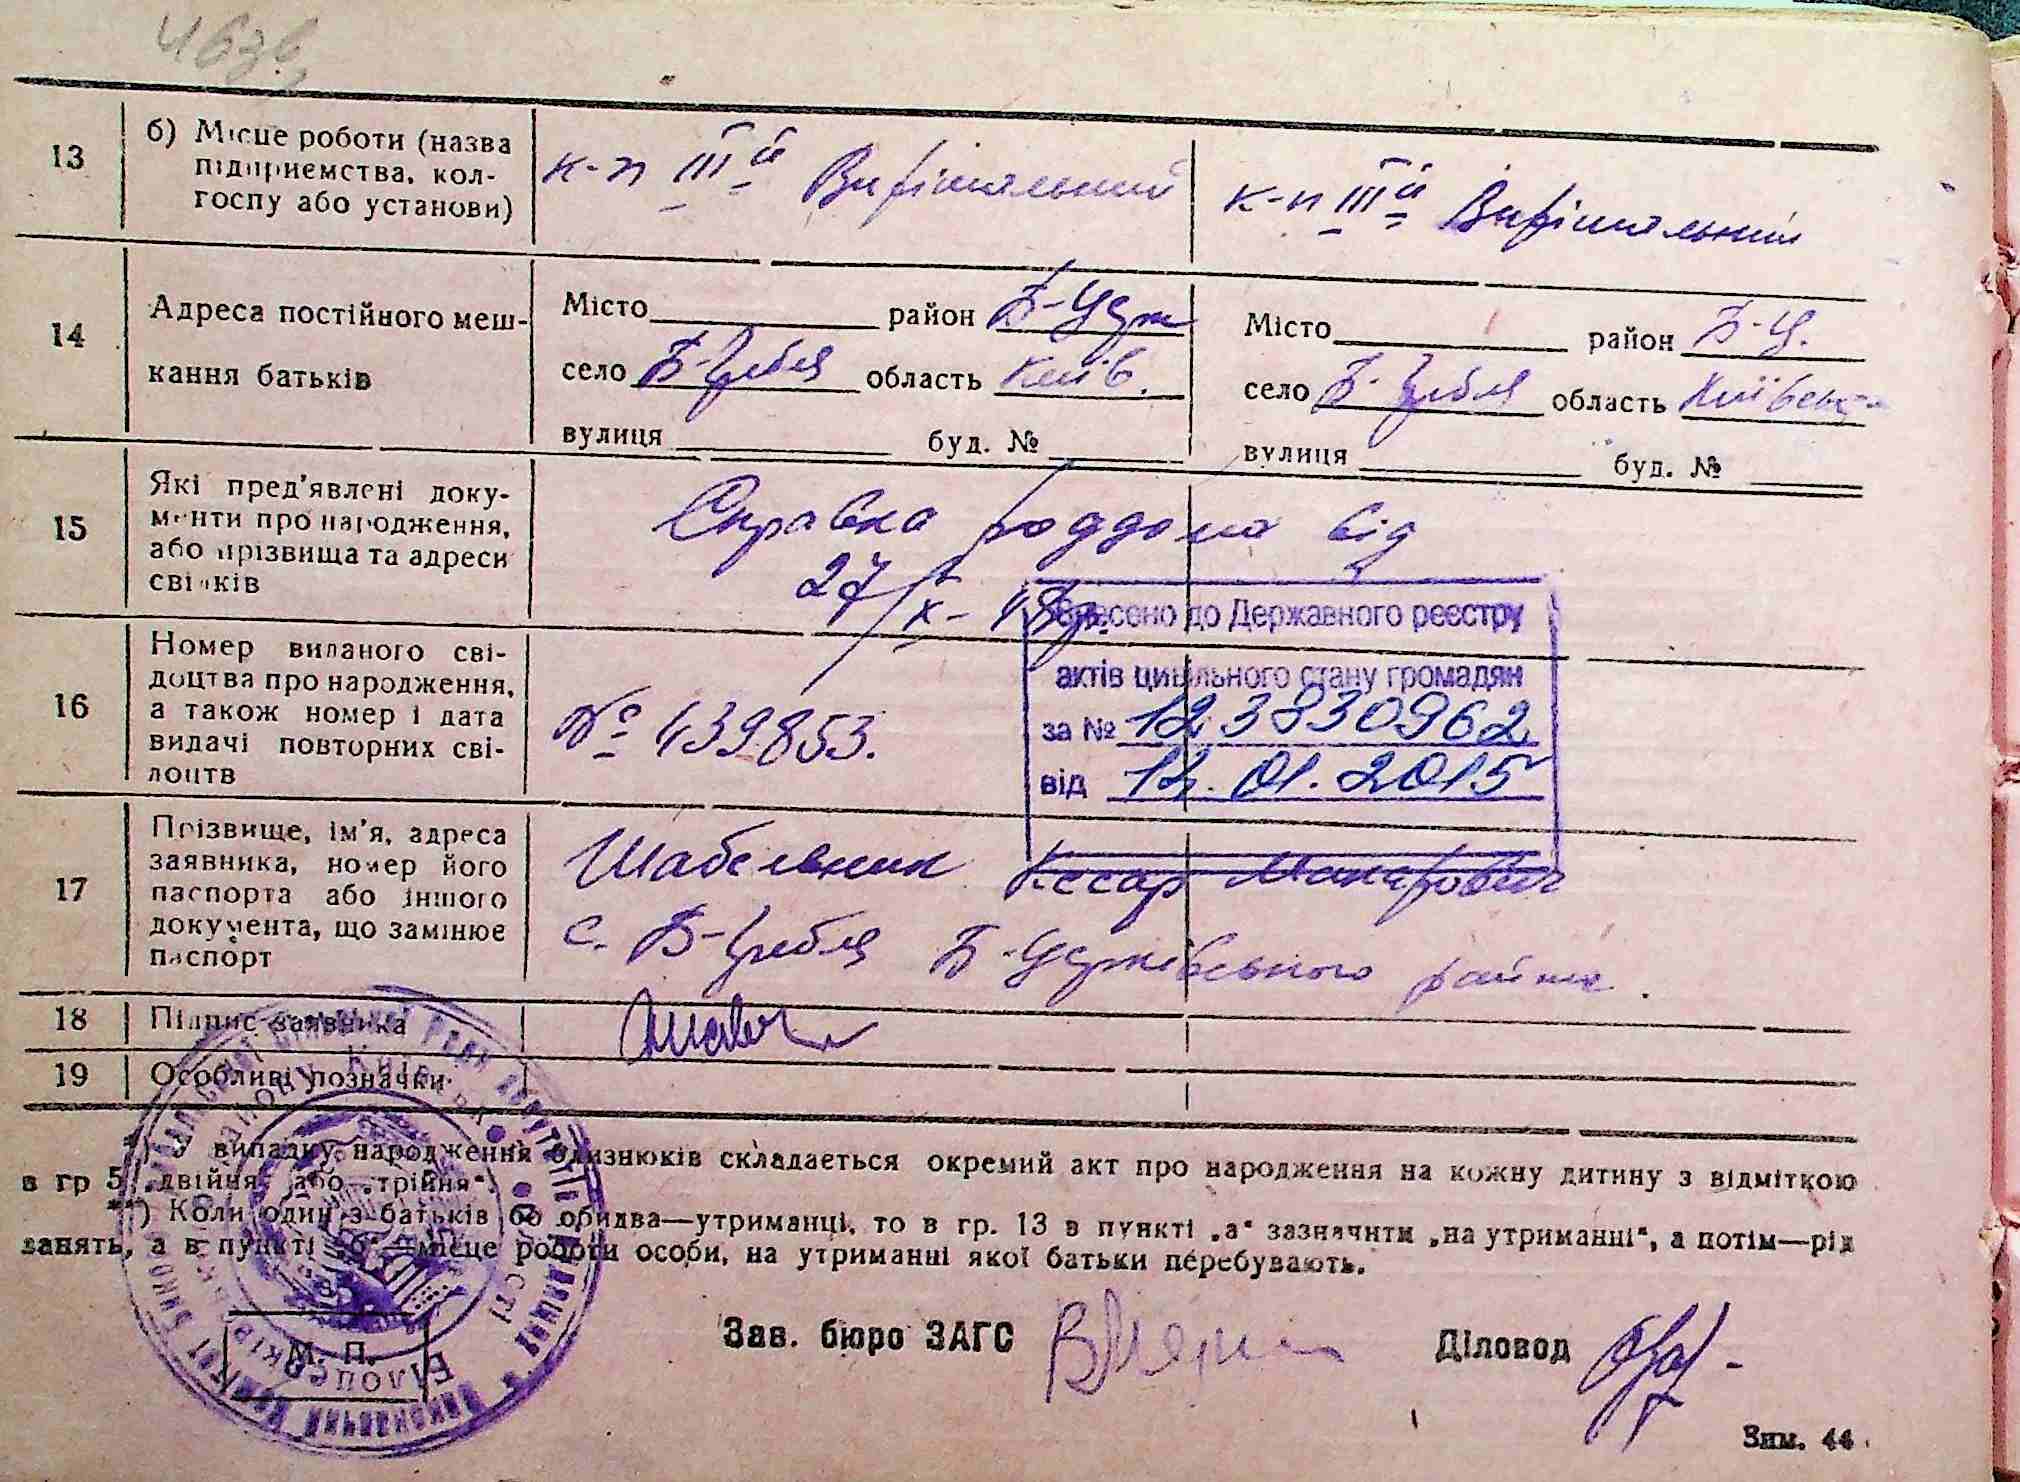 13
б) Місце роботи (назва
підприємства, кол-
госпу або установи)
к-п ІІІй Вирішальний
к-п ІІІй Вирішальний
14
Адреса постійного меш-
кання батьків
Місто район
село Б-Гребля область Київ.
вулиця буд. №
Місто район Б-Ц.
село Б-Гребля область Київськ
вулиця буд. №
15
Які пред'явлені доку-
менти про народження,
або прізвища та адреси
свідків
Справка роддома від
27/X-48р.
16
Номер виданого сві-
доцтва про народження,
а також номер і дата
видачі повторних сві-
доцтв
№ 439853.
Внесено до Державного реєстру
актів цивільного стану громадян
за № 12383 0962
від 12.01.2015
17
Прізвище, ім'я, адреса
заявника, номер його
паспорта або іншого
документа, що замінює
паспорт
Шабельник Кесар Макарович
с. Б-Гребля району.
18
Підпис заявника
19
Особливі позначки
*) У випадку народження близнюків складається окремий акт про народження на кожну дитину з відміткою
в гр 5 „двійня" або „трійня".
**) Коли один з батьків бо обидва—утриманці, то в гр. 13 в пункті „а" зазначити „на утриманні", а потім—рід
занять, а в пункті „б" —місце роботи особи, на утриманні якої батьки перебувають.
М. П.
Зав. бюро ЗАГС
Діловод
Зим. 44